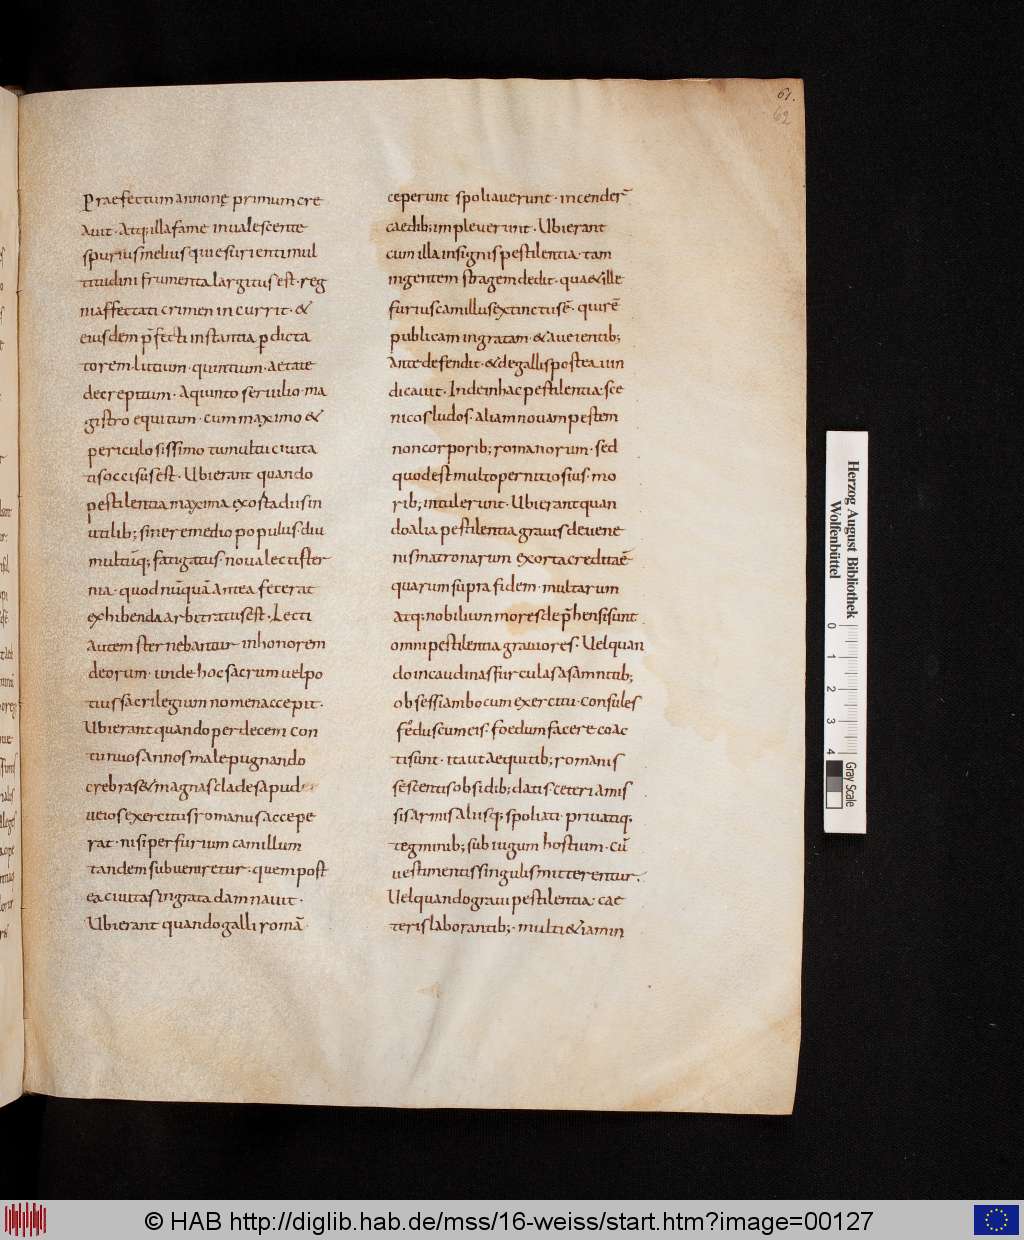 61.
62
Praefectum annonę primum cre
auit· Atq; illa fame inualescente
spurius melius qui esurienti mul
titudini frumenta largitus est· reg
ni affectati crimen incurrit· &
eiusdem p̄fecti instantia ꝑ dicta
torem· l· titium· quintium· aetate
decrepitum· A quinto seruilio· ma
gistro equitum· cum maximo &
periculosissimo tumultu ciuita
tis occisus est· Ubi erant quando
pestilentia maxima exosta diis in
utilib; sine remedio populus· diu
multūq; fatigatus· noua lectister
nia· quod nūquā antea fecerat
exhibenda arbitratus est· Lecti
autem sternebantur inhonorem
deorum· unde hoc sacrum uel po
tius sacrilegium nomen accepit·
Ubi erant quando per decem con
tinuos annos male pugnando
crebras & magnas clades apud
ueios exercitus romanus accepe
rat· nisi per furium camillum
tandem subueniretur· quem post
ea ciuitas ingrata damnauit·
Ubi erant quando galli romā
ceperunt spoliauerunt· incender̄
caedib; impleuerunt· Ubi erant
cum illa insignis pestilentia· tam
ingentem stragem dedit· qua & ille
furius camillus extinctus ē· qui rē
publicam ingratam· & a ueientib;
ante defendit· & de gallis postea uin
dicauit· Inde in hac pestilentia· sce
nicos ludos· aliam nouam pestem
non corporib; romanorum· sed
quod est multo pernitiosius· mo
rib; intulerunt· Ubi erant quan
do alia pestilentia grauis de uene
nis matronarum exorta credita ē
quarum supra fidem· multarum
atq; nobilium mores dep̄hensi sunt
omni pestilentia grauiores· Uel quan
do in caudinas furculas a samnitib;
obsessi ambo cum exercitu· consules
foędus cum eis· foedum facere coac
ti sunt· ita ut aequitib; romanis
sescentis obsidib; datis ceteri amis
sis armis aliisq; spoliati· priuatiq;
tegminib; sub iugum hostium· cū
uestimentis singulis mitterentur·
Uel quando graui pestilentia· cae
teris laborantib;· multi & iam in
Herzog August Bibliothek
Wolfenbüttel
0 1 2 3 4
Gray Scale
© HAB http://diglib.hab.de/mss/16-weiss/start.htm?image=00127